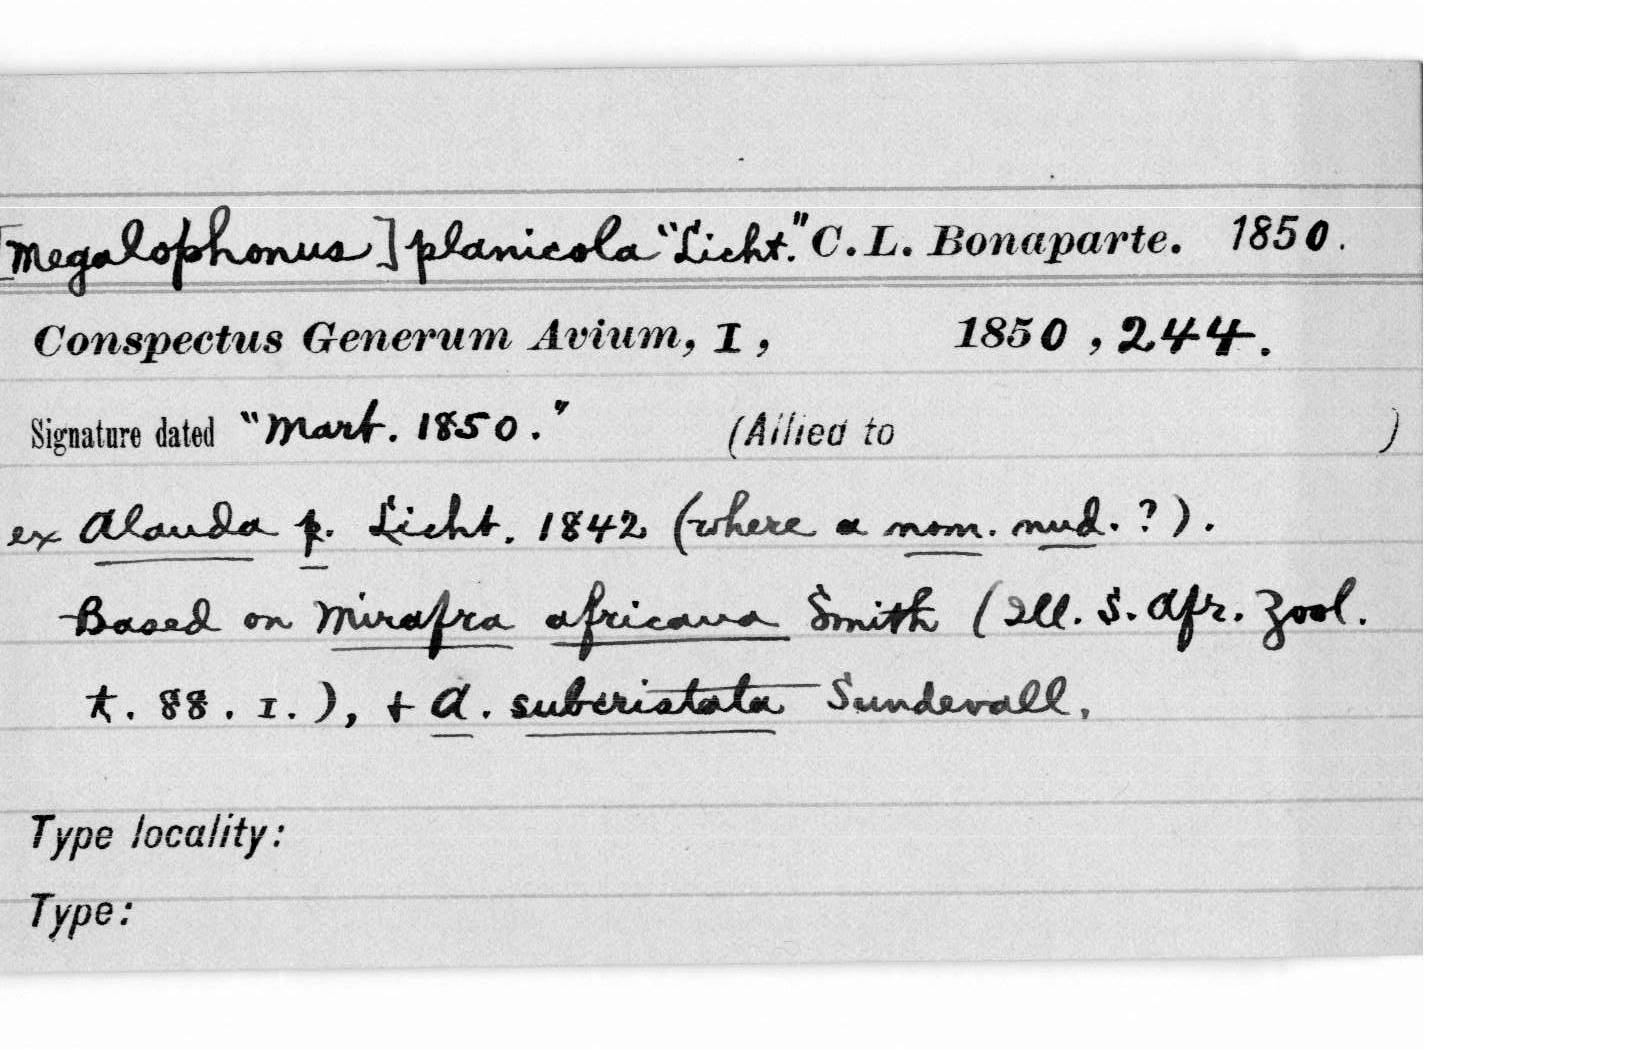 [Megalophonus] planicola "Licht." C. L. Bonaparte. 1850.
Conspectus Generum Avium, I, 1850, 244.
Signature dated "Mart. 1850." (Allied to )
ex Alauda p. Licht. 1842 (where a nom. nud. ?).
Based on Mirafra africana Smith (Ill. S. Afr. Zool.
t. 88. I.), + A. subcristata Sundevall.
Type locality:
Type: